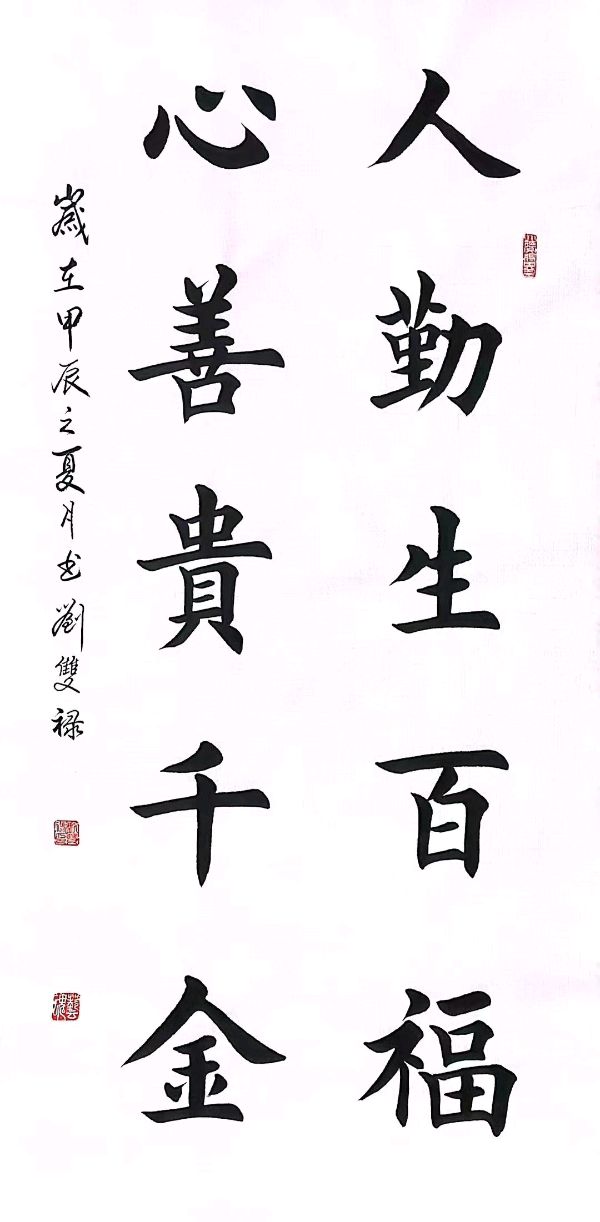 人勤生百福
心善貴千金
歲在甲辰之夏月书劉雙祿